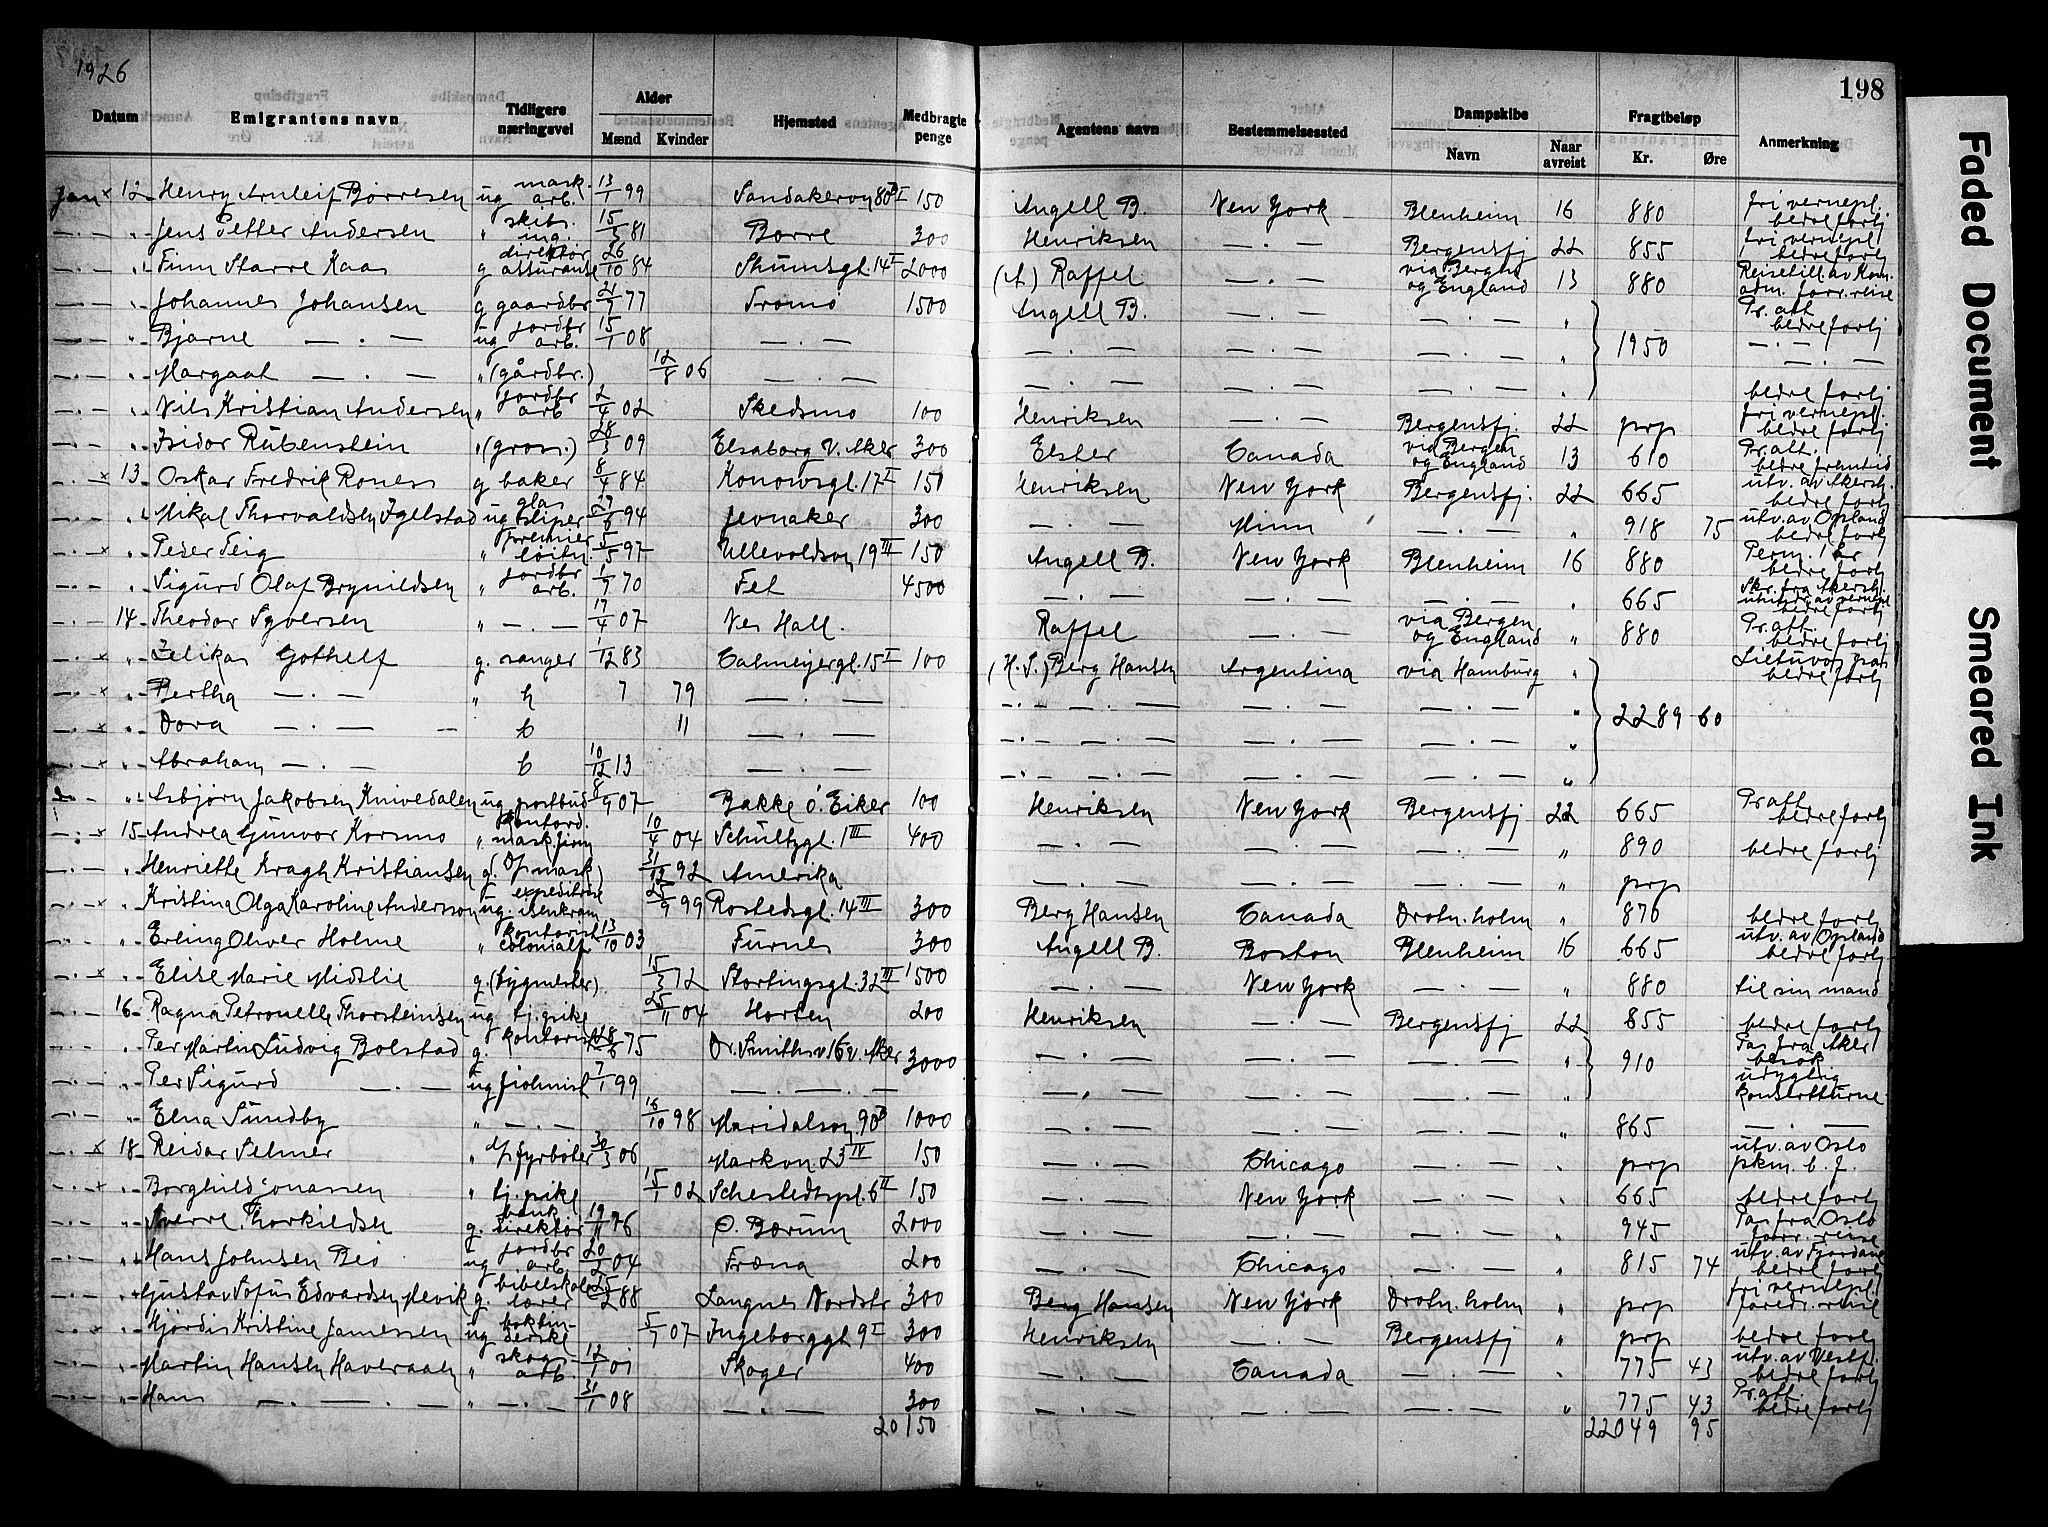 1926
198
Datum Emigrantens navn Tidligere næringsvei Alder Mænd Kvinder Hjemsted Medbragte penge Agentens navn Bestemmelsessted Dampskibe Navn Naar avreist Fragtbeløp Kr. Øre Anmerkning
Jan x 12 Henry Arnleif Børresen ug mask. arb. 13/1 99 Sandakervn 80 B I 150 Angell B. New York Blenheim 16 880 fri vernepl. bedre forhj
" Jens Petter Andersen " skibs ing. 15/3 81 Borre 300 Henriksen — . — Bergensfj 22 855 fri vernepl. bedre forhj
" Finn Starre Kaas g direktør assuranse 26/10 84 14 I 2000 (A) Raffel — . — via Bergen og England 13 880 Reisetill. av Kom. adm. forr. reise
" Johannes Johansen g gaardbr 21/9 77 Tromø 1500 Angell B. — . — — . — " Pr. att. bedre forhj
" Bjarne — . — ug jordbr arb. 15/1 08 — . — — . — — . — — . — " 1950 — . —
" Margaat — . — " (gårdbr.) 12/8 06 — . — — . — — . — — . — " — . —
" Nils Kristian Andersen " jordbr arb 2/4 02 Skedsmo 100 Henriksen — . — Bergensfj. 22 prp bedre forhj fri vernepl.
" Isidor Rubenstein " (gros.) 28/3 09 Elsaborg V. Aker 300 Elster Canada via Bergen og England 13 610 bedre forhj Pr. att.
x 13 Oskar Fredrik Rones g baker 8/4 84 Konowsgt. 17 I 150 Henriksen New York Bergensfj. 22 665 bedre fremtid utv. av Akersh.
" Mikal Thorvaldsen Igelstad ug glas sliper 94 Jevnaker 300 — . — Minn — . — " 918 75 bedre forhj utv. av Opland
x " Peder Teig " premier løitn. 5/5 97 Ullevoldsvn 19 III 150 Angell B. New York Blenheim 16 880 bedre forhj Perm. 1 år
" Sigurd Olaf Brynildsen " jordbr arb. 1/9 70 Fet 4500 — . — — . — — . — " 665 bedre forhj Skr. fra Akersh.
14 Theodor Syversen " — . — 17/4 07 Nes Hall. Raffel — . — via Bergen og England " 880 bedre forhj Pr. att. bedre forhj
x " Zelikas Gothelf g. sanger 1/12 83 Calmeyergt. 15 I 100 (H. S.) Berg Hansen Argentina via Hamburg " Lietuvos pas bedre forhj
x " Bertha — . — " h 7 79 — . — — . — — . — — . — "
x " Dora — . — b 11 — . — — . — — . — — . — " 2289 60
x " Abraham — . — b 10/12 13 — . — — . — — . — — . — "
" Asbjørn Jakobsen Knivedalen ug postbud 8/9 07 Bakke Ö. Eiker 100 Henriksen New York Bergensfj 22 665 Pr att bedre forhj
x 15 Andrea Gunvor Korsmo " kontord. mask. firm 10/4 04 Schultzgt. 1 III 400 — . — — . — — . — " 890 bedre forhj
" Henriette Kragh Kristiansen g. (D/S mask) 31/12 92 Amerika — . — — . — — . — " prp
x " Kristina Olga Karoline Andersson ug. expeditrise isenkram 25/9 99 Rostedsgt. 14 III 300 Berg Hansen Canada Drotn. holm " 870 bedre forhj
" Erling Oliver Holme " kontorist colonialf 13/10 03 Furnes 300 Angell B. Boston Blenheim 16 665 utv. av Opland bedre forhj
x " Elise Marie Midtlie g. (bygmester) 15/3 72 Stortingsgt. 32 III 1500 — . — New York — . — " 880 til sin mand
16 Ragna Petronelle Thorsteinsen ug tj. pike 25/11 04 Horten 200 Henriksen — . — Bergensfj 22 855 bedre forhj
" Per Martin Ludvig Bolstad g. kontorist 8/6 75 Dr. Smiths v 16 V. Aker 3000 — . — — . — — . — " 910 Pas fra Aker besøk
" Per Sigurd — . — ug fiolinist 7/1 99 — . — — . — — . — — . — " udyglig konsertturne
" Elna Sundby " — . — 16/10 98 Maridalsvn 90 B 1000 — . — — . — — . — " 865 — . —
x 18 Reidar Selmer " D/S fyrbøter 30/3 06 Markvn 23 IV 150 — . — Chicago — . — " prp utv. av Oslo pkm. b. f.
x " Borghild Jonassen " tj. pike 15/1 02 Schestedtspl. 6 II 150 — . — New York — . — " 665 bedre forhj
" Sverre Thorkildsen g. bank direktør 19/11 76 Ö. Bærum 2000 — . — — . — — . — " 945 Pas fra Oslo forr. reise
" Hans Johnsen Beo ug jordbr arb. 20/2 04 Fræna 200 — . — Chicago — . — " 815 74 utv. av Fjordane bedre forhj
" Gustav Sofus Edvardsen Mevik g. bibelskole lærer 25/2 88 Langnes Nordstr 300 Berg Hansen New York Drotn. holm " prp fri vernepl. foredr. reise
x " Hjørdis Kristine Jamessen ug boktin- derske 5/7 07 Ingeborggt 9 I 300 Henriksen — . — Bergensfj " prp bedre forhj
" Martin Hansen Haveraaen " skog arb. 12/1 01 Skoger 400 — . — Canada — . — " 775 43 utv. av Vestf. bedre forhj
" Hans — . — . — " — . — 31/1 08 — . — 300 — . — — . — — . — " 775 43 Pr. att. bedre forhj
20150 22049 95
Faded Document
Smeared Ink